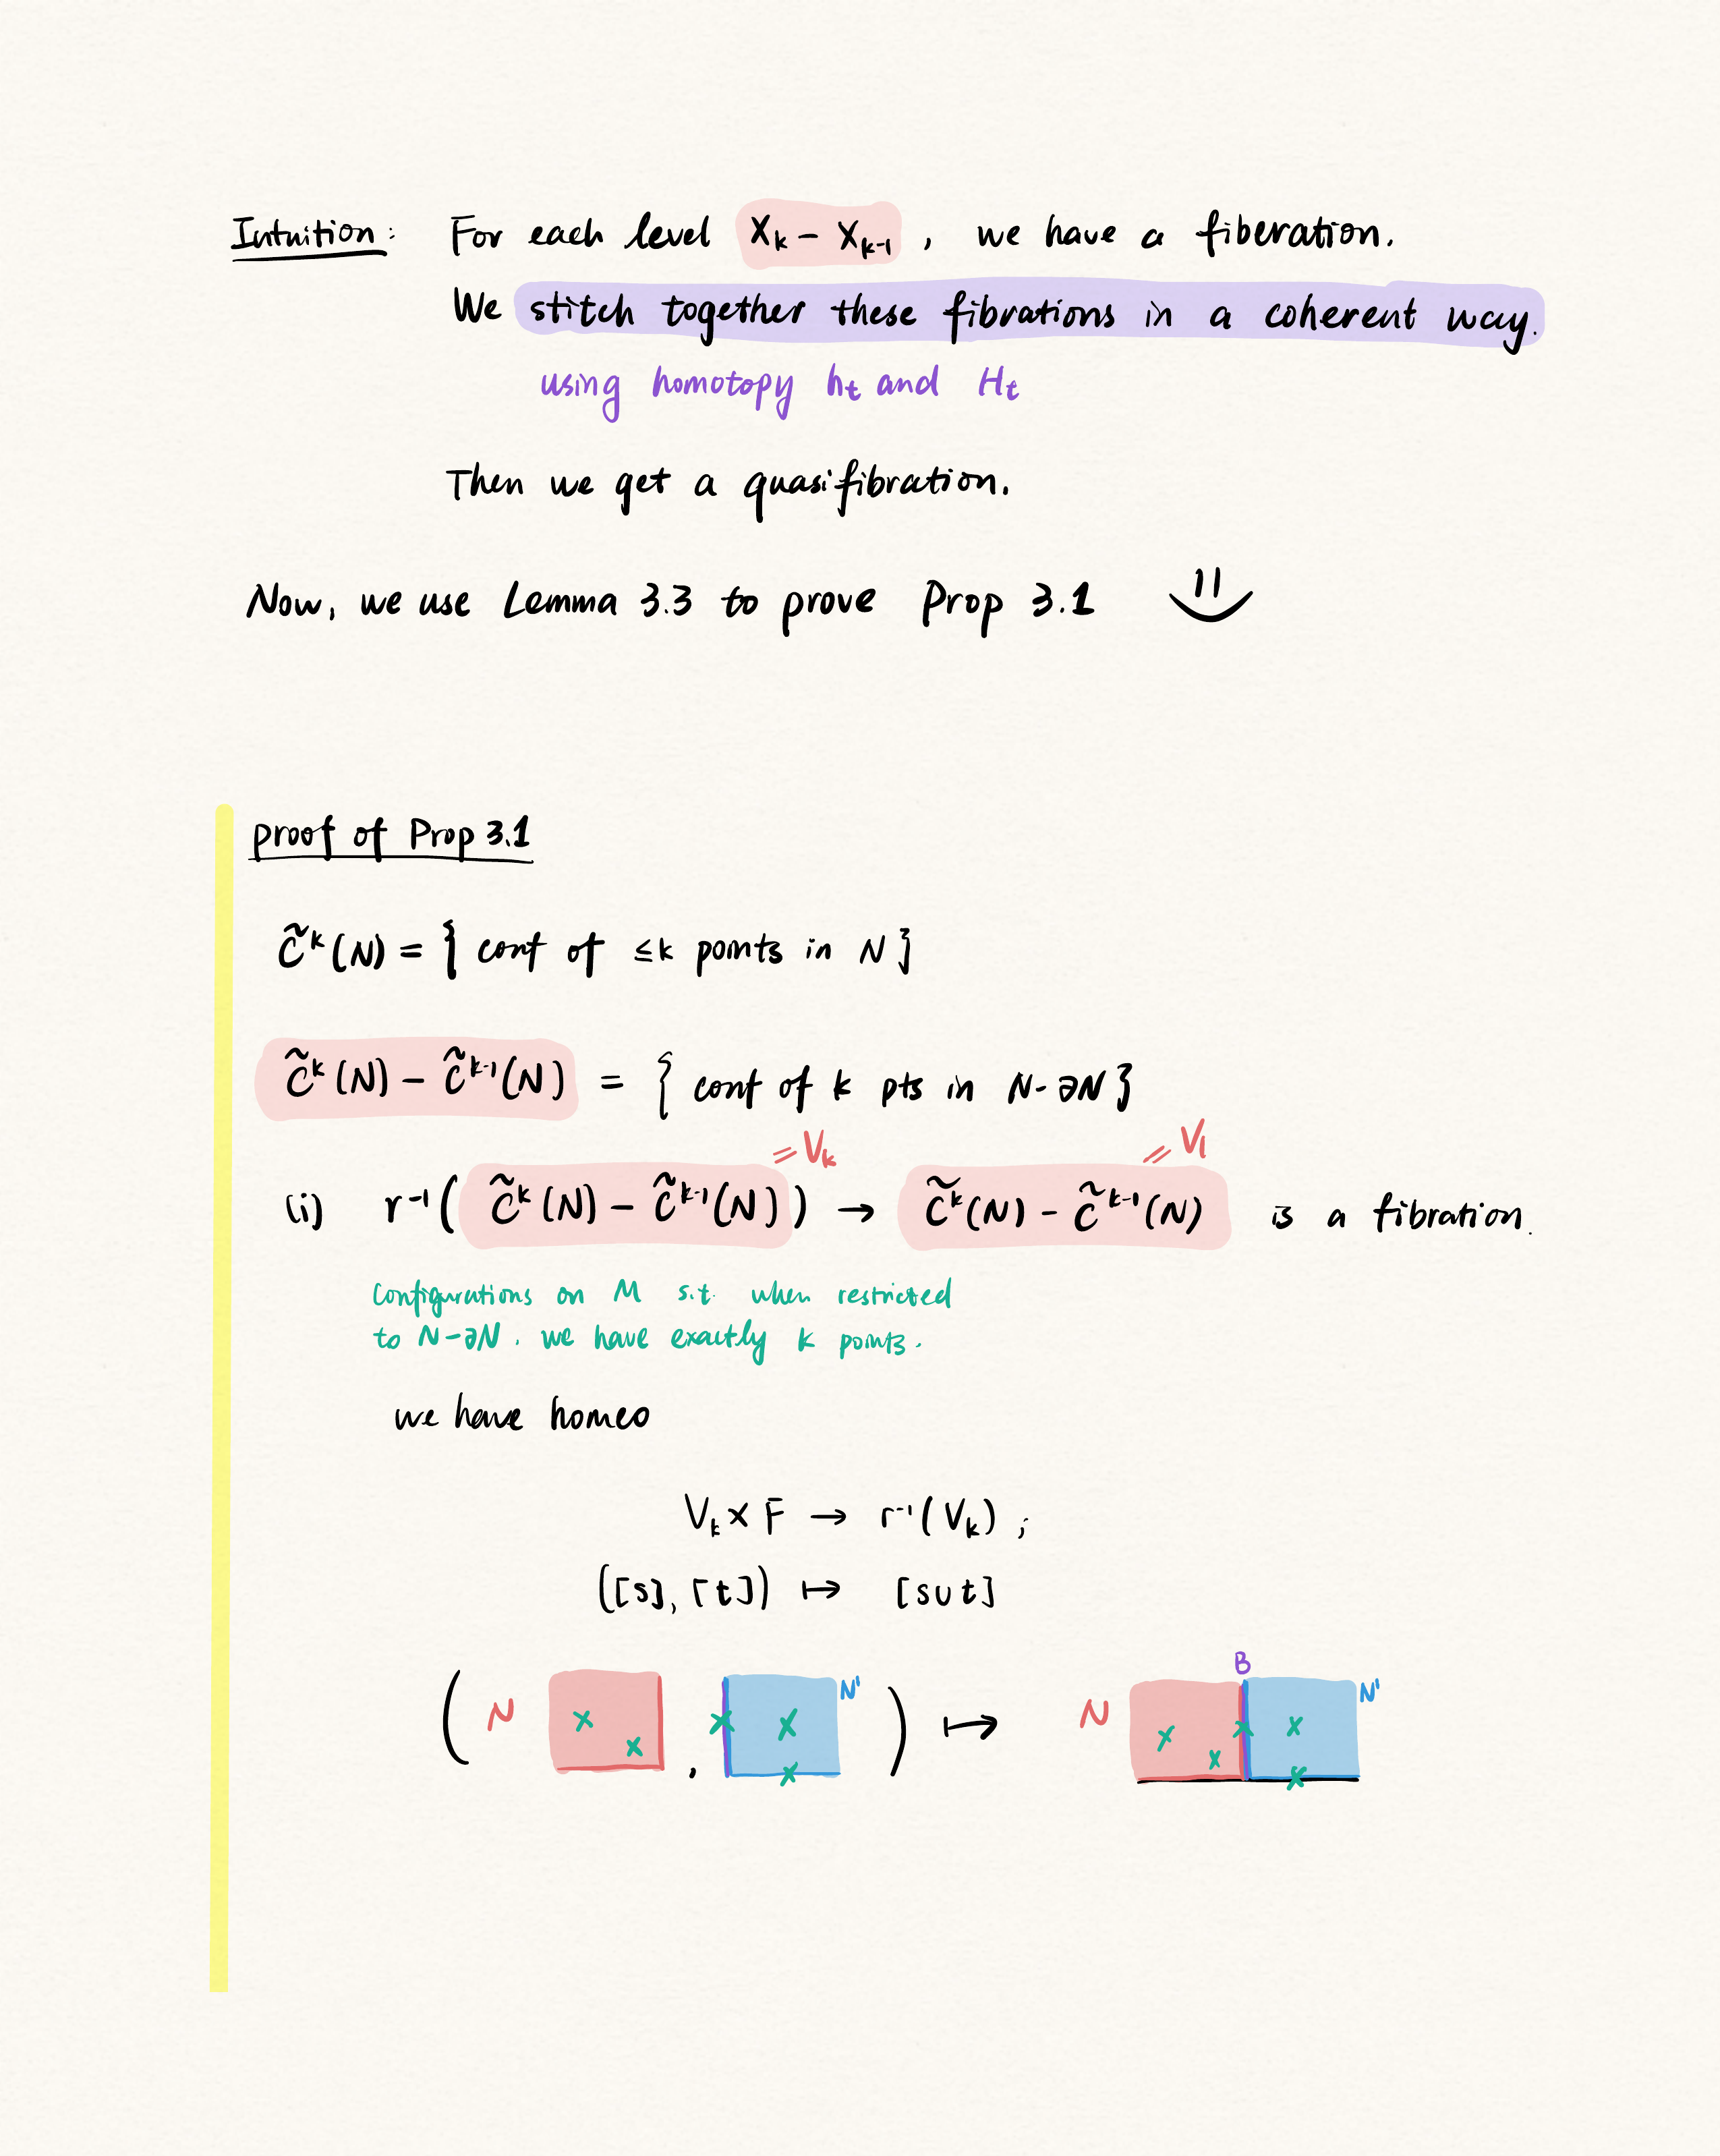 Intuition: For each level Xₖ − Xₖ₋₁ , we have a fiberation.
We stitch together these fibrations in a coherent way.
using homotopy hₜ and Hₜ
Then we get a quasifibration.
Now, we use Lemma 3.3 to prove Prop 3.1
proof of Prop 3.1
C̃ᵏ(N) = { conf of ≤k points in N }
C̃ᵏ(N) − C̃ᵏ⁻¹(N) = { conf of k pts in N-∂N }
= Vₖ = Vₗ
(i) r⁻¹( C̃ᵏ(N) − C̃ᵏ⁻¹(N) ) → C̃ᵏ(N) − C̃ᵏ⁻¹(N) is a fibration.
Configurations on M s.t. when restricted
to N-∂N, we have exactly k points.
we have homeo
Vₖ × F → r⁻¹(Vₖ) ;
([s], [t]) ↦ [s∪t]
B
( N , N' ) ↦ N N'